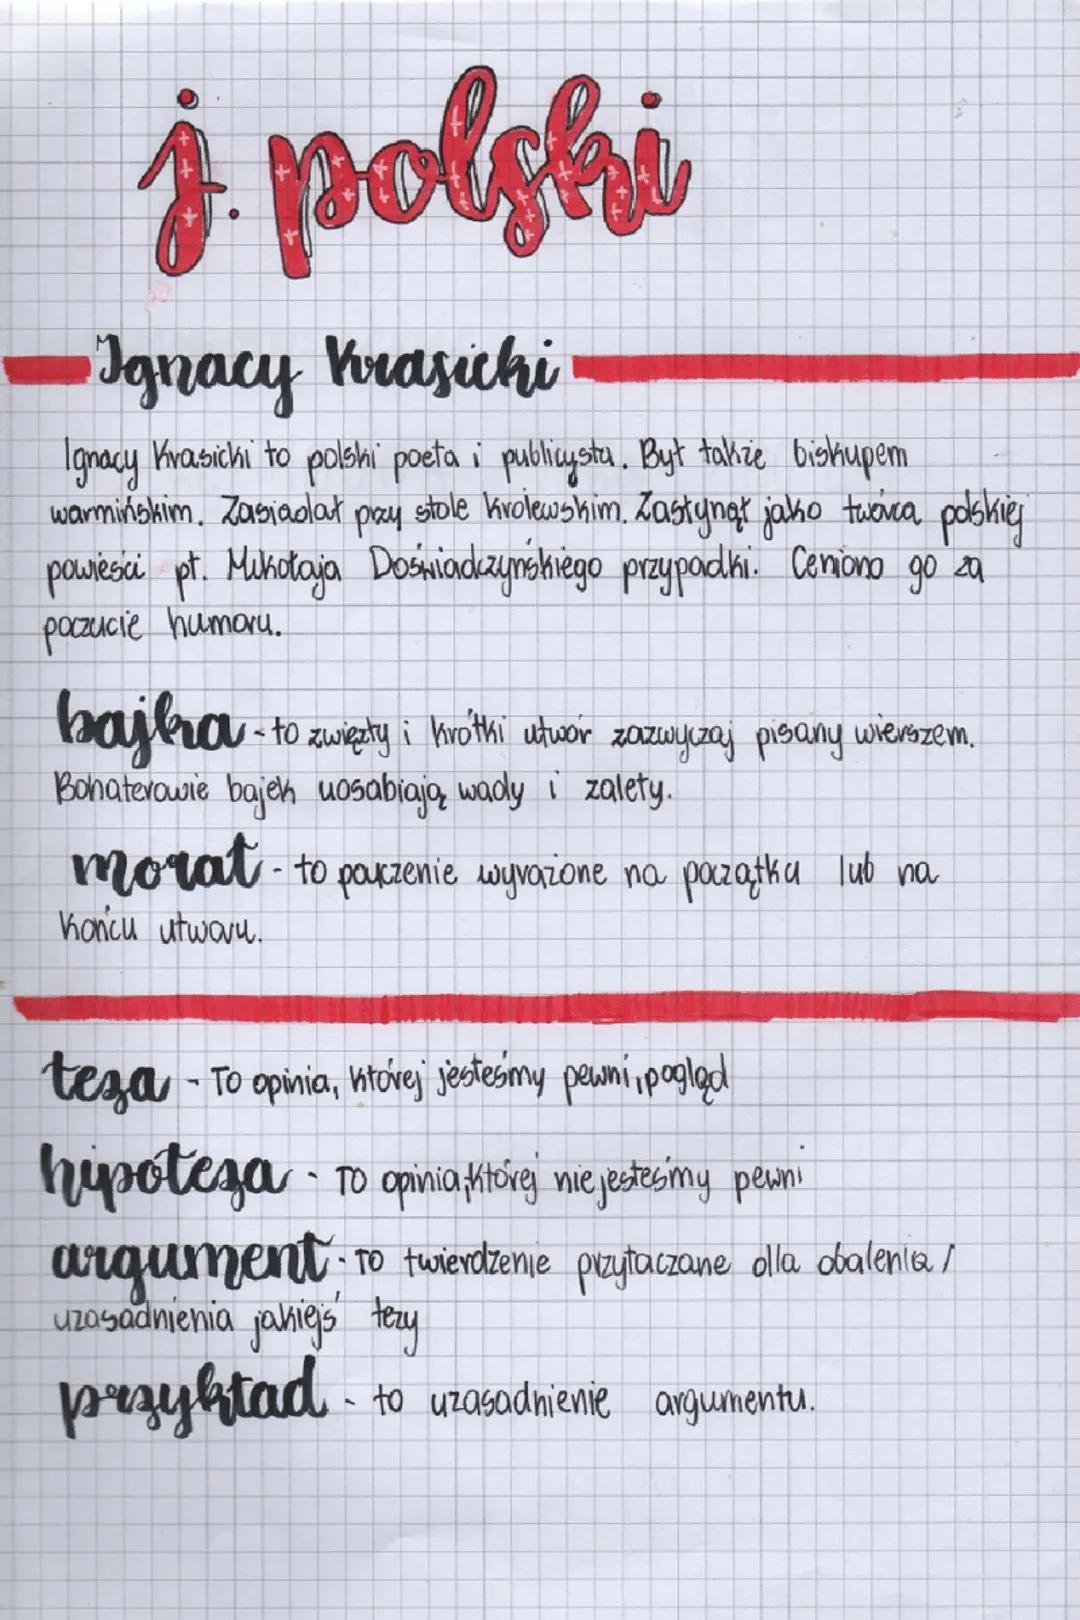 j. polski
Ignacy Krasicki
Ignacy Krasicki to polski poeta i publicysta. Był także biskupem
warmińskim. Zasiadał przy stole królewskim. Zasłynął jako twórca polskiej
powieści pt. Mikołaja Doświadczyńskiego przypadki. Ceniono go za
poczucie humoru.
bajka - to zwięzły i krótki utwór zazwyczaj pisany wierszem.
Bohaterowie bajek uosabiają wady i zalety.
morał - to pouczenie wyrażone na początku lub na
końcu utworu.
teza - To opinia, której jesteśmy pewni, pogląd
hipoteza - To opinia, której nie jesteśmy pewni
argument - To twierdzenie przytaczane dla obalenia /
uzasadnienia jakiejś tezy
przykład - to uzasadnienie argumentu.